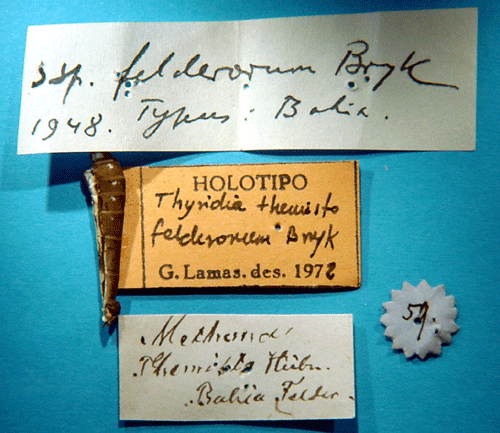 ssp. felderorum Bryk
1948. Typus: Bahia.
HOLOTIPO
Thyridia themisto
felderorum Bryk
G. Lamas. des. 1972
Methona
Themisto Hübn.
Bahia Felder.
59.